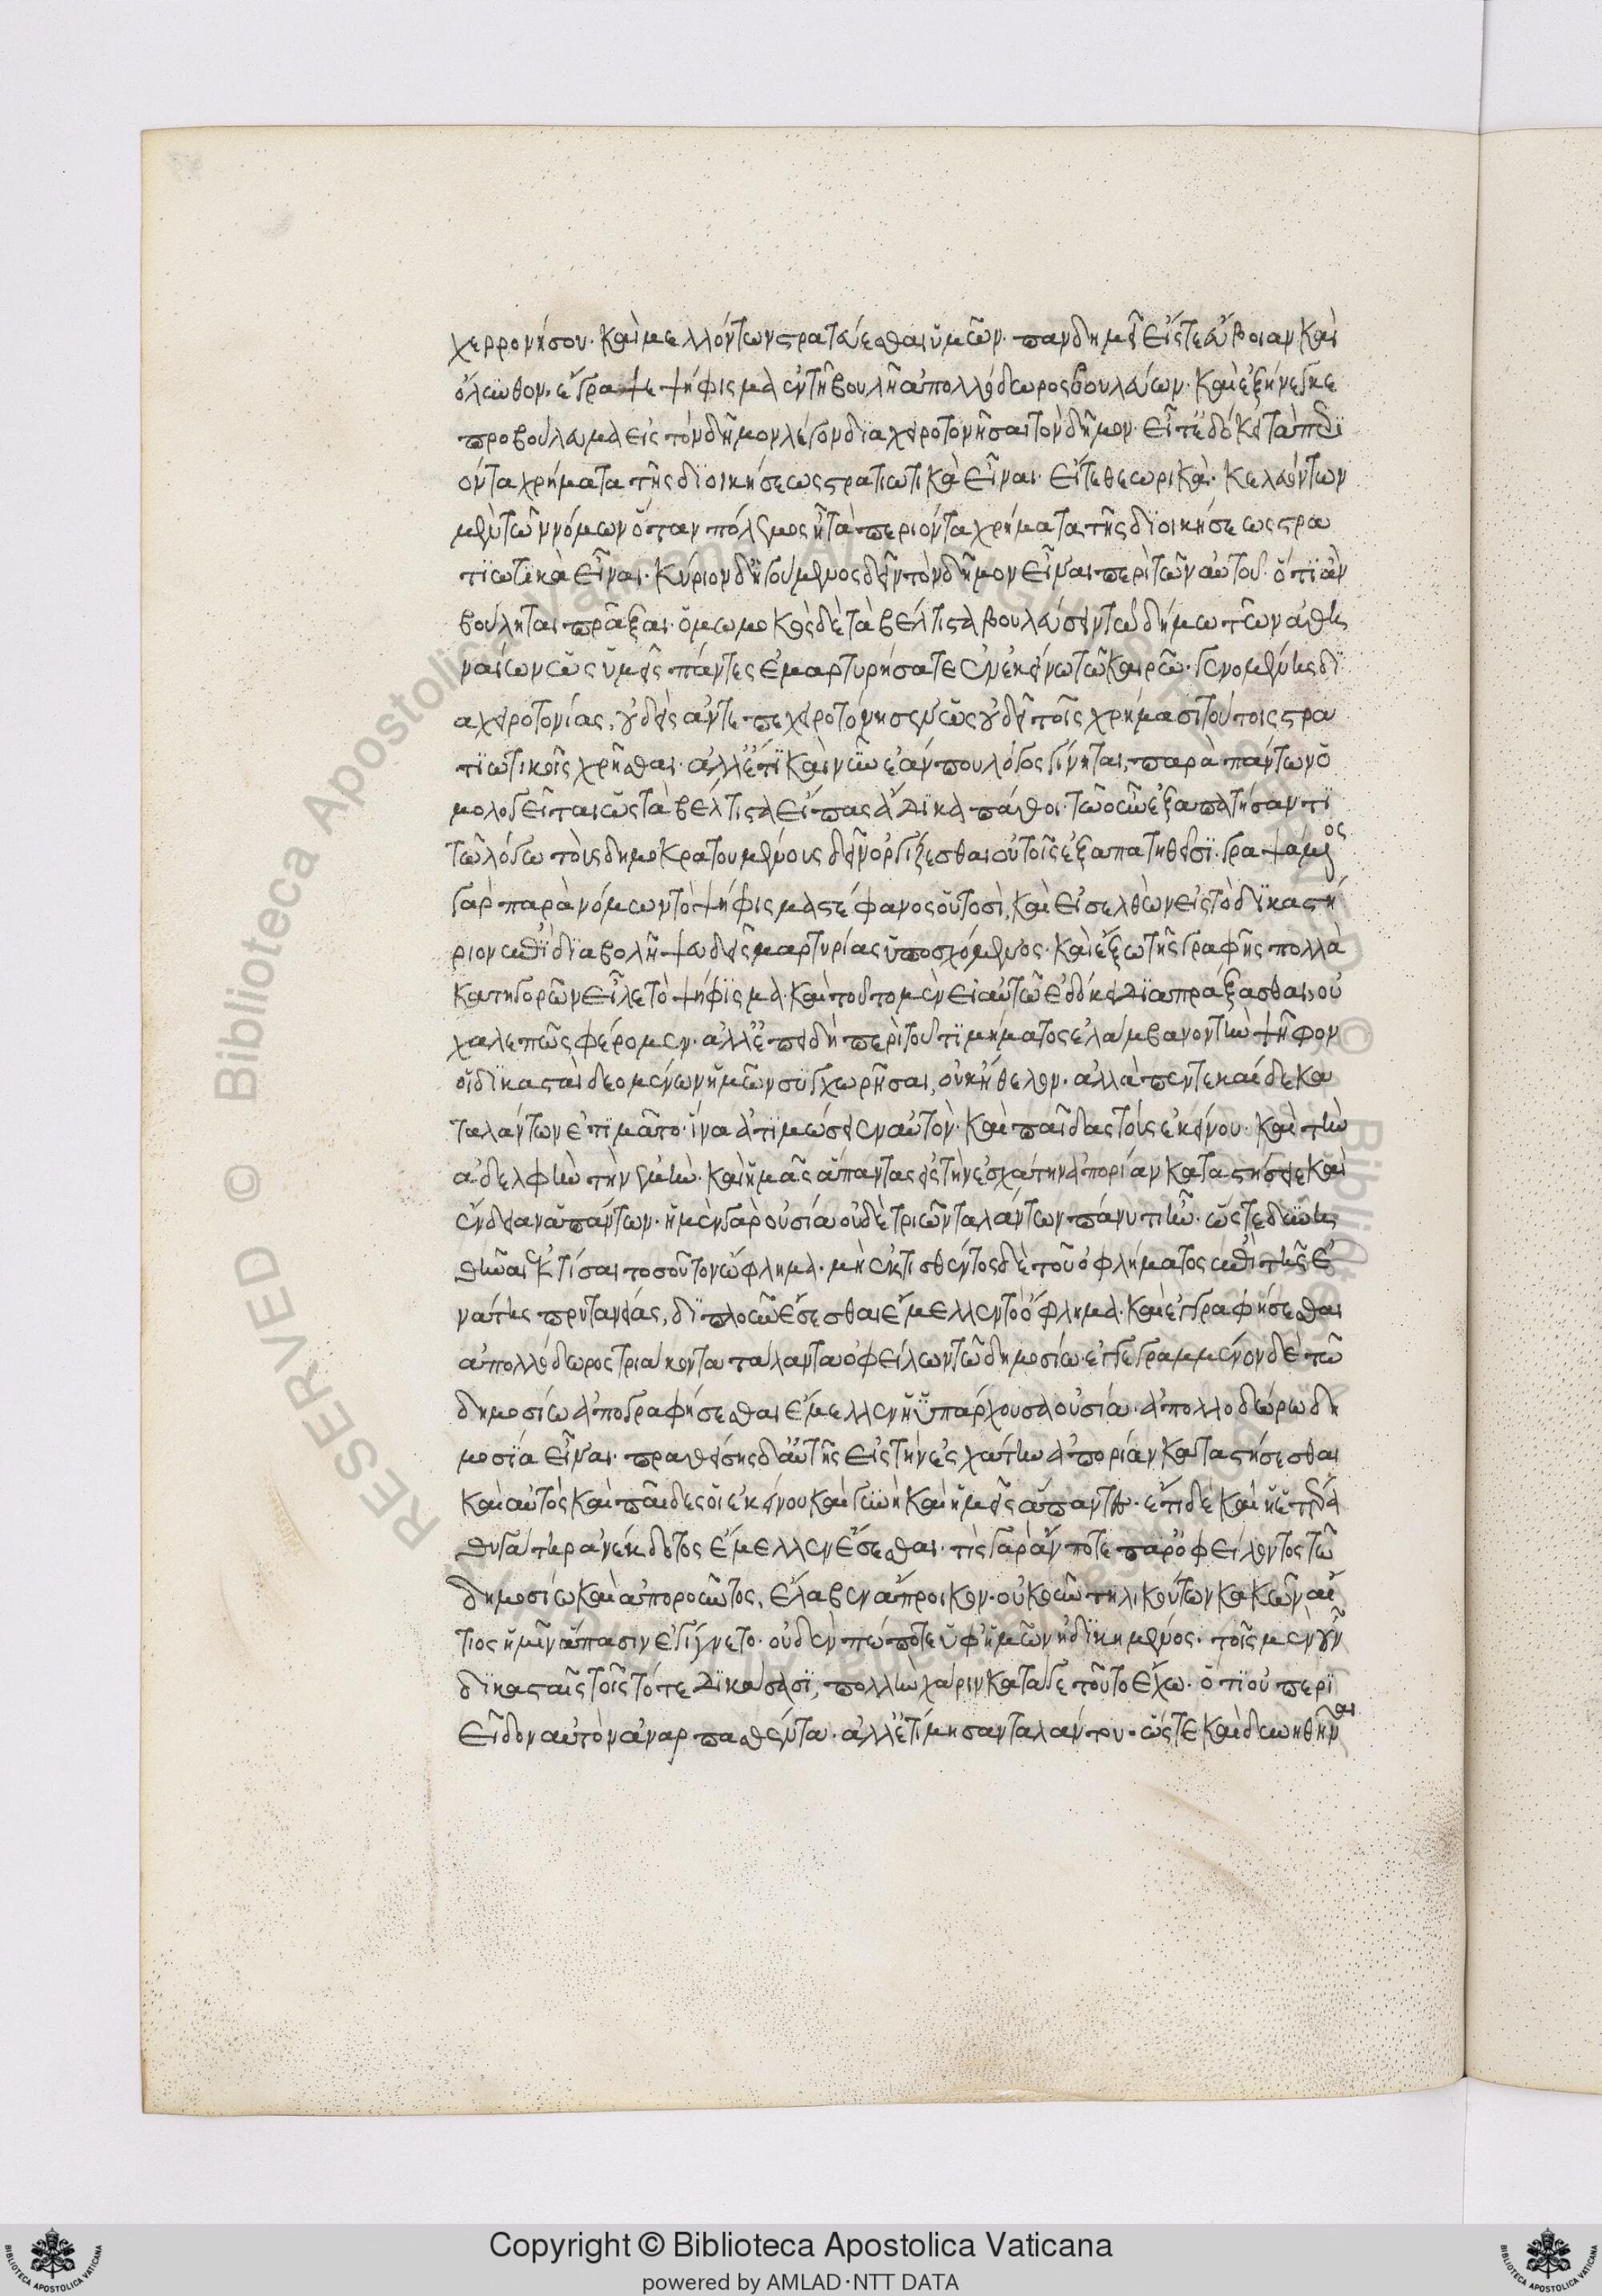 χερρονήσου· καὶ μελλόντων στρατεύεσθαι ὑμῶν· πανδημεὶ εἴς τε εὔβοιαν καὶ
ὄλυνθον, ἔγραψε ψήφισμα ἐν τῇ βουλῇ ἀπολλόδωρος βουλεύων· καὶ ἐξήνεγκε
προβούλευμα εἰς τὸν δῆμον λέγον διαχειροτονῆσαι τὸν δῆμον· εἴτε δοκεῖ τὰ περι
όντα χρήματα τῆς διοικήσεως στρατιωτικὰ εἶναι· εἴτε θεωρικά· κελευόντων
μὲν τῶν νόμων ὅταν πόλεμος ᾖ τὰ περιόντα χρήματα τῆς διοικήσεως στρα
τιωτικὰ εἶναι· κύριον δ' ἡγούμενος δεῖν τὸν δῆμον εἶναι περὶ τῶν αὑτοῦ· ὅτι ἂν
βούληται πρᾶξαι· ὀμωμοκὼς δὲ τὰ βέλτιστα βουλεύσειν τῷ δήμῳ τῶν ἀθη
ναίων ὡς ὑμεῖς πάντες ἐμαρτυρήσατε ἐν ἐκείνῳ τῷ καιρῷ· γενομένης δι
αχειροτονίας, οὐδεὶς ἀντεχειροτόνησεν ὡς οὐ δεῖ τοῖς χρήμασι τούτοις στρα
τιωτικοῖς χρῆσθαι· ἀλλ' ἔτι καὶ νῦν ἐάν που λόγος γίνηται, παρὰ πάντων ὁ
μολογεῖται ὡς τὰ βέλτιστα εἴπας ἄδικα πάθοι· τῷ οὖν ἐξαπατήσαντι
τῷ λόγῳ τοὺς δημοκρατουμένους δεῖν ὀργίζεσθαι οὐ τοῖς ἐξαπατηθεῖσι· γραψάμενος
γὰρ παρὰ νόμων τὸ ψήφισμα στέφανος οὑτοσί, καὶ εἰσελθὼν εἰς τὸ δικαστή
ριον ἐπὶ διαβολῇ ψευδεῖς μαρτυρίας ὑποσχόμενος· καὶ ἔξω τῆς γραφῆς πολλὰ
κατηγορῶν εἷλε τὸ ψήφισμα· καὶ τοῦτο μὲν εἰ αὐτῷ ἐδόκει διαπράξασθαι, οὐ
χαλεπῶς φέρομεν· ἀλλ' ἐπειδὴ περὶ τοῦ τιμήματος ἐλάμβανον τὴν ψῆφον
οἱ δικασταὶ δεομένων ἡμῶν συγχωρῆσαι, οὐκ ἤθελεν· ἀλλὰ πεντεκαίδεκα
ταλάντων ἐτιμᾶτο· ἵνα ἀτιμώσειεν αὐτὸν· καὶ παῖδας τοὺς ἐκείνου· καὶ τὴν
ἀδελφὴν τὴν ἐμὴν· καὶ ἡμᾶς ἅπαντας εἰς τὴν ἐσχάτην ἀπορίαν καταστήσειε καὶ
ἔνδειαν ἁπάντων· ἡ μὲν γὰρ οὐσία οὐδὲ τριῶν ταλάντων πάνυ τι ἦν· ὥστε δυνη
θῆναι ἐκτίσαι τοσοῦτον ὤφλημα· μὴ ἐκτισθέντος δὲ τοῦ ὀφλήματος ἐπὶ τῆς ἐ
νάτης πρυτανείας, διπλοῦν ἔσεσθαι ἔμελλεν τὸ ὄφλημα· καὶ ἐγγραφήσεσθαι
ἀπολλόδωρος τριάκοντα τάλαντα ὀφείλων τῷ δημοσίῳ· ἐγγεγραμμένον δὲ τῷ
δημοσίῳ ἀπογραφήσεσθαι ἔμελλεν ἡ ὑπάρχουσα οὐσία· ἀπολλοδώρῳ δη
μοσία εἶναι· πραθείσης δ' αὐτῆς εἰς τὴν ἐσχάτην ἀπορίαν καταστήσεσθαι
καὶ αὐτὸς καὶ παῖδες οἱ ἐκείνου καὶ γυνὴ καὶ ἡμεῖς ἅπαντες· ἔτι δὲ καὶ ἡ ἑτέρα
θυγάτηρ ἀνέκδοτος ἔμελλεν ἔσεσθαι· τίς γὰρ ἄν ποτε παρ' ὀφείλοντος τῷ
δημοσίῳ καὶ ἀποροῦντος, ἔλαβεν ἄπροικον· οὐκοῦν τηλικούτων κακῶν αἴ
τιος ἡμῖν ἅπασιν ἐγίγνετο· οὐδὲν πώποτε ὑφ' ἡμῶν ἠδικημένος· τοῖς μὲν οὖν
δικασταῖς τοῖς τότε δικάσασι, πολλὴν χάριν κατά γε τοῦτο ἔχω· ὅτι οὐ περι
εῖδον αὐτὸν ἀναρπασθέντα· ἀλλ' ἐτίμησαν ταλάντου· ὥστε καὶ δυνηθῆναι